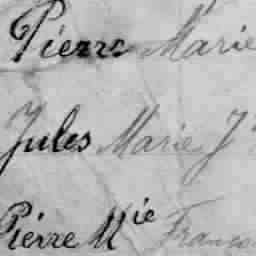 Pierre Marie
Jules Marie J
Pierre Mie Franço